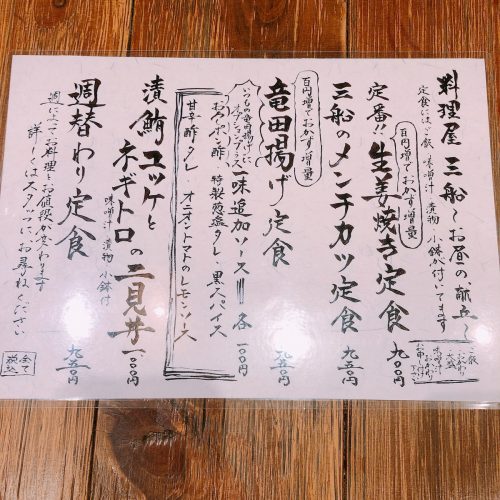 料理屋 三船〜お昼の、献立〜
定食にはご飯 味噌汁 漬物 小鉢が付いてます
ご飯
おかわり
大盛
味噌汁
お申し付け下さい
百円増でおかず増量
定番!! 生姜焼き定食 九〇〇円
三船のメンチカツ定食 九五〇円
百円増でおかず増量
竜田揚げ定食 九五〇円
いつもの竜田揚げに
オプションプラス
一味追加ソース!!! 各一〇〇円
おろしポン酢、特製葱塩タレ、黒スパイス
甘辛酢タレ オニオントマトのレモンソース
漬鮪ユッケと
ネギトロの二見丼 一、〇〇〇円
味噌汁 漬物 小鉢付
週替わり定食 九五〇円
週によってお料理とお値段が変わります
詳しくはスタッフにお尋ねください
全て
税込